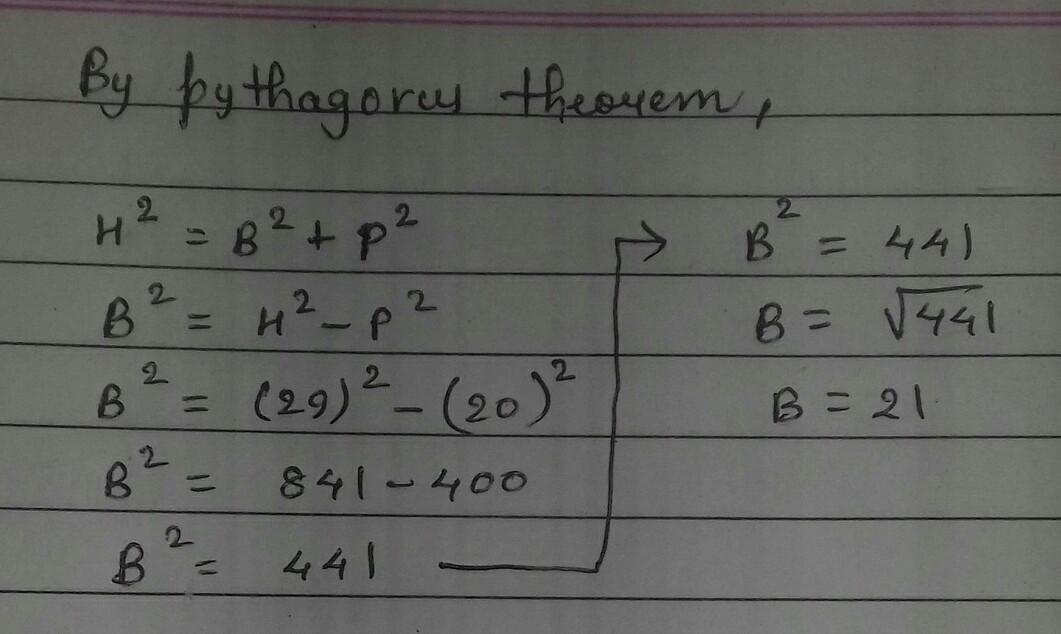 By pythagorus theorem,
H² = B² + P²
B² = H² - P²
B² = (29)² - (20)²
B² = 841 - 400
B² = 441
→ B² = 441
B = √441
B = 21